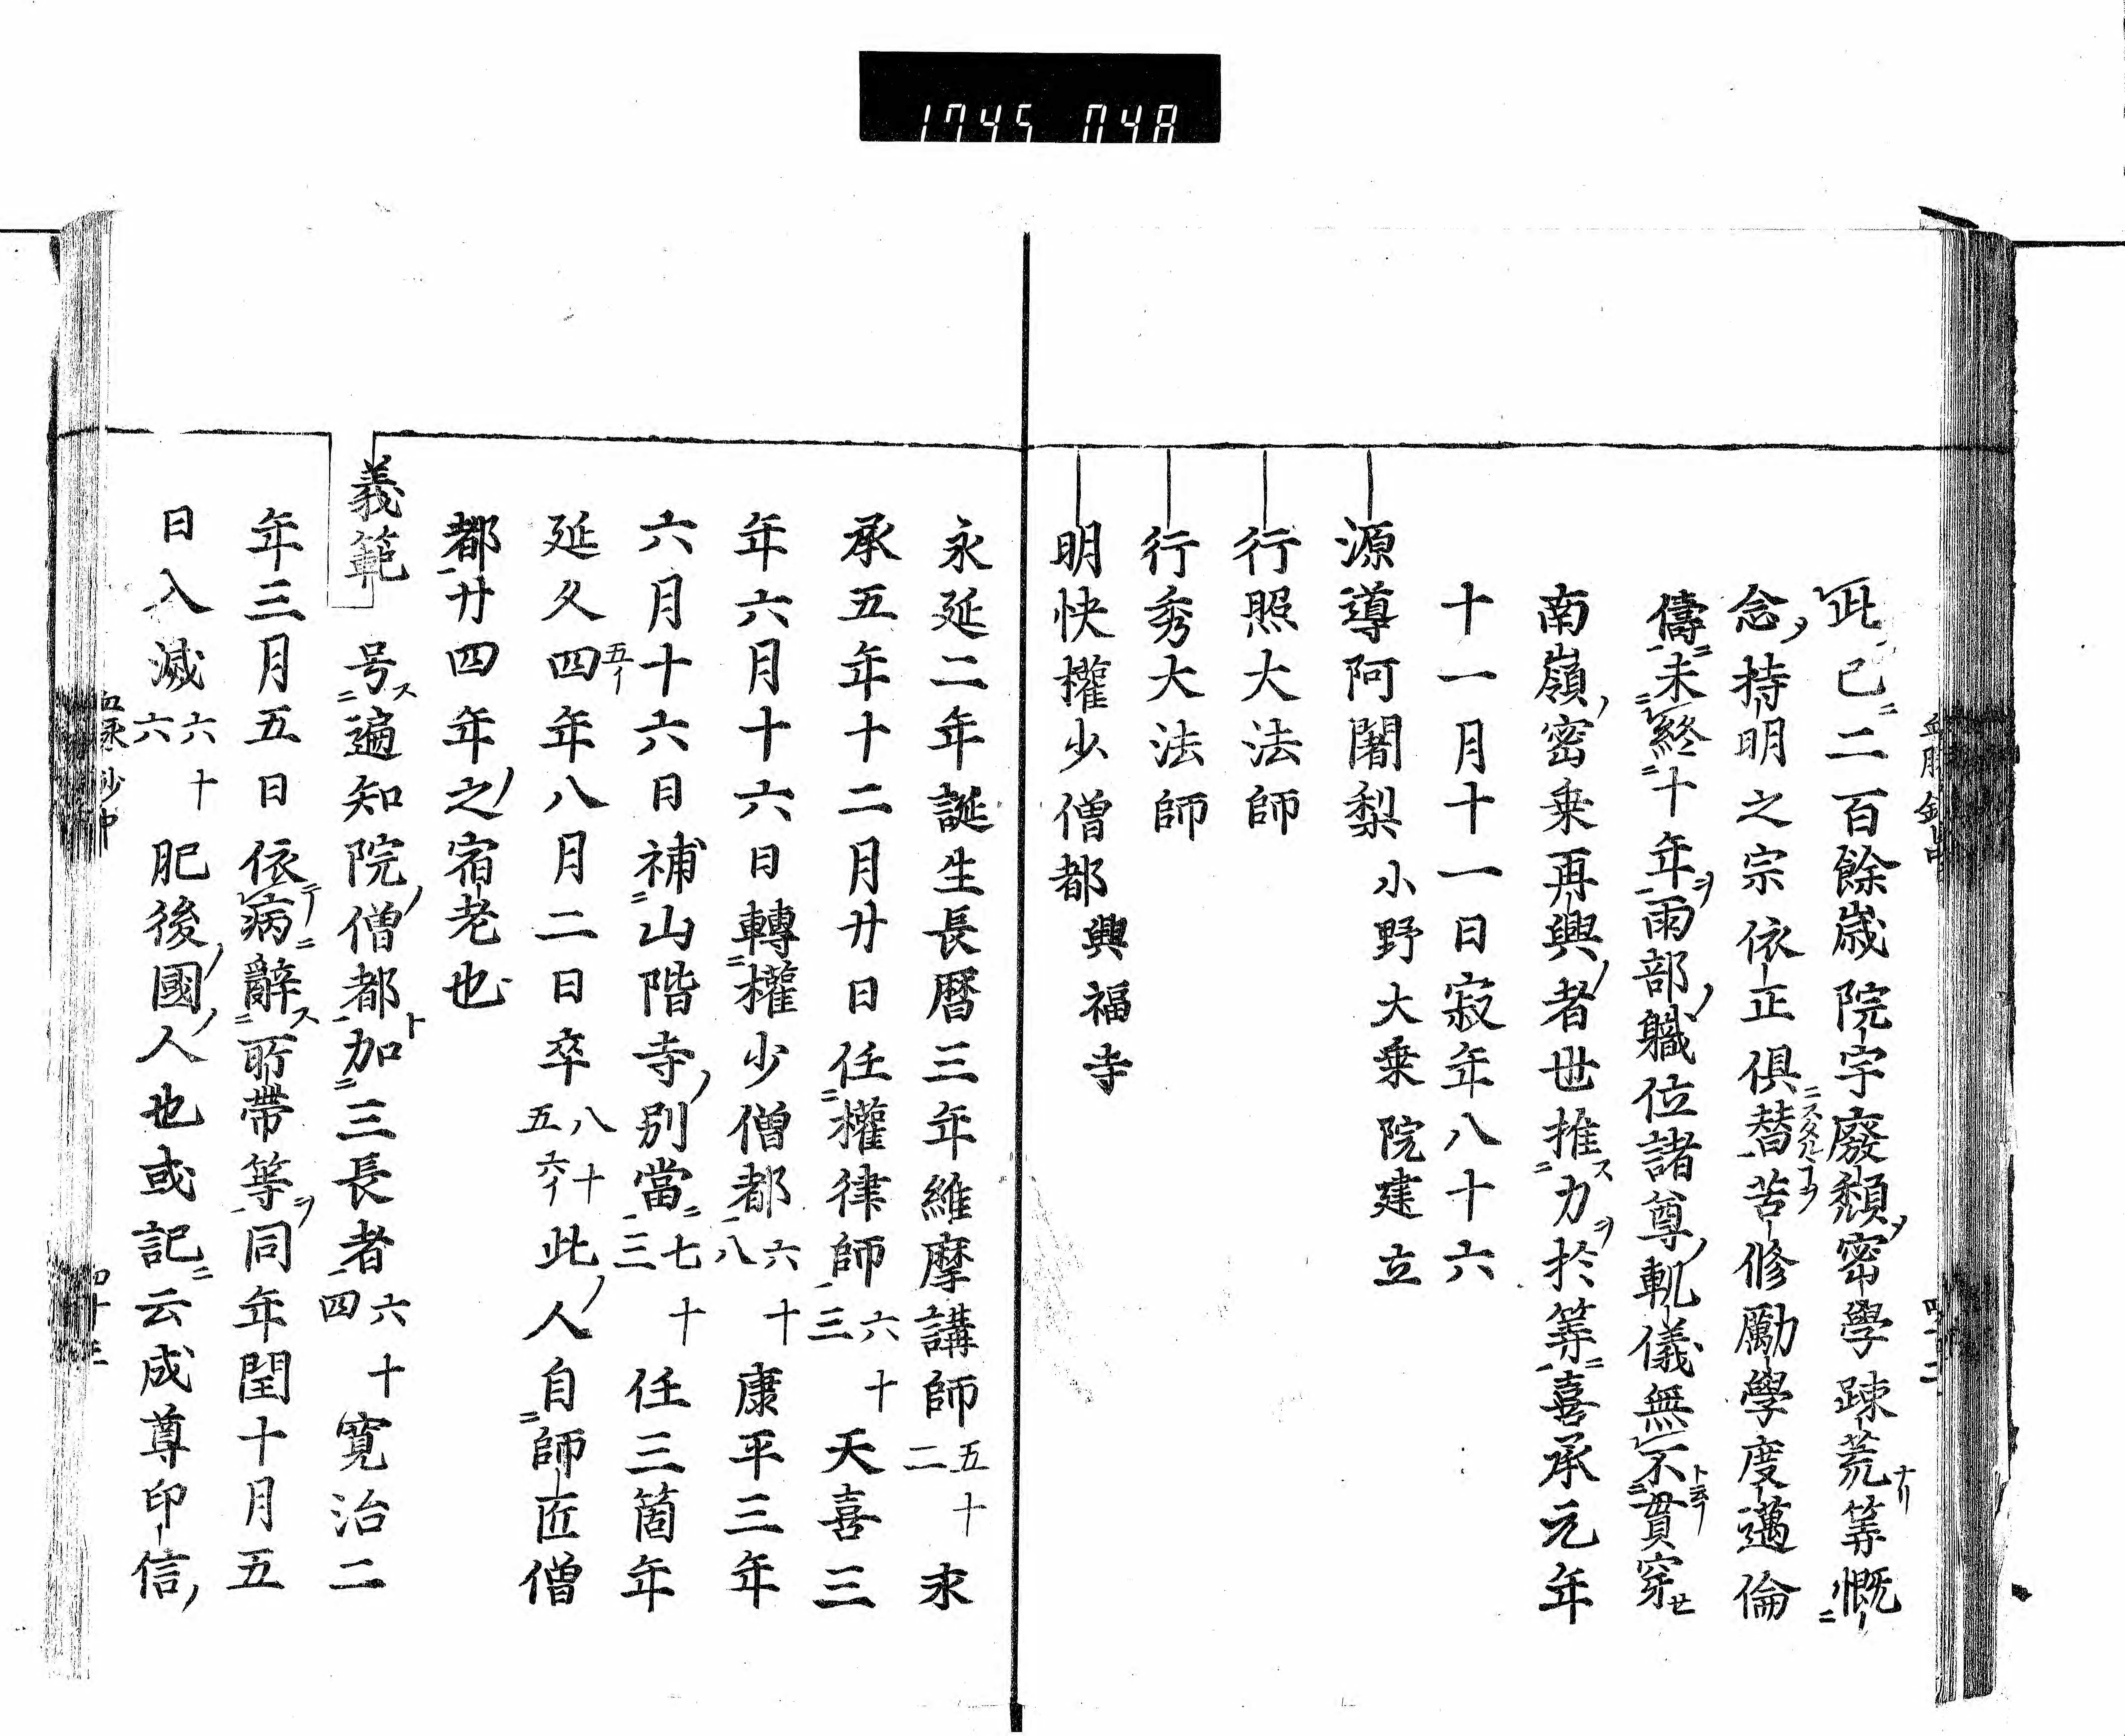 1745 048
此已二百餘歳院宇廢頽密學踈荒等慨
念持明之宗依正俱替苦修勵學度邁倫
儔未終十年兩部軄位諸尊軌儀無不貫穿
南嶺密乗再興者世推力於等喜承元年
十一月十一日寂年八十六
源導阿闍梨 小野大乗院建立
行照大法師
行秀大法師
明快權少僧都 興福寺
永延二年誕生長暦三年維摩講師五十二永
承五年十二月廿日任權律師六十三天喜三
年六月十六日轉權少僧都六十八康平三年
六月十六日補山階寺別當七十三任三箇年
延久四五イ年八月二日卒八十五六イ此人自師匠僧
都廿四年之宿老也
義範 号遍知院僧都加三長者六十四寛治二
年三月五日依病辭所帶等同年閏十月五
日入滅六十六肥後國人也或記云成尊印信